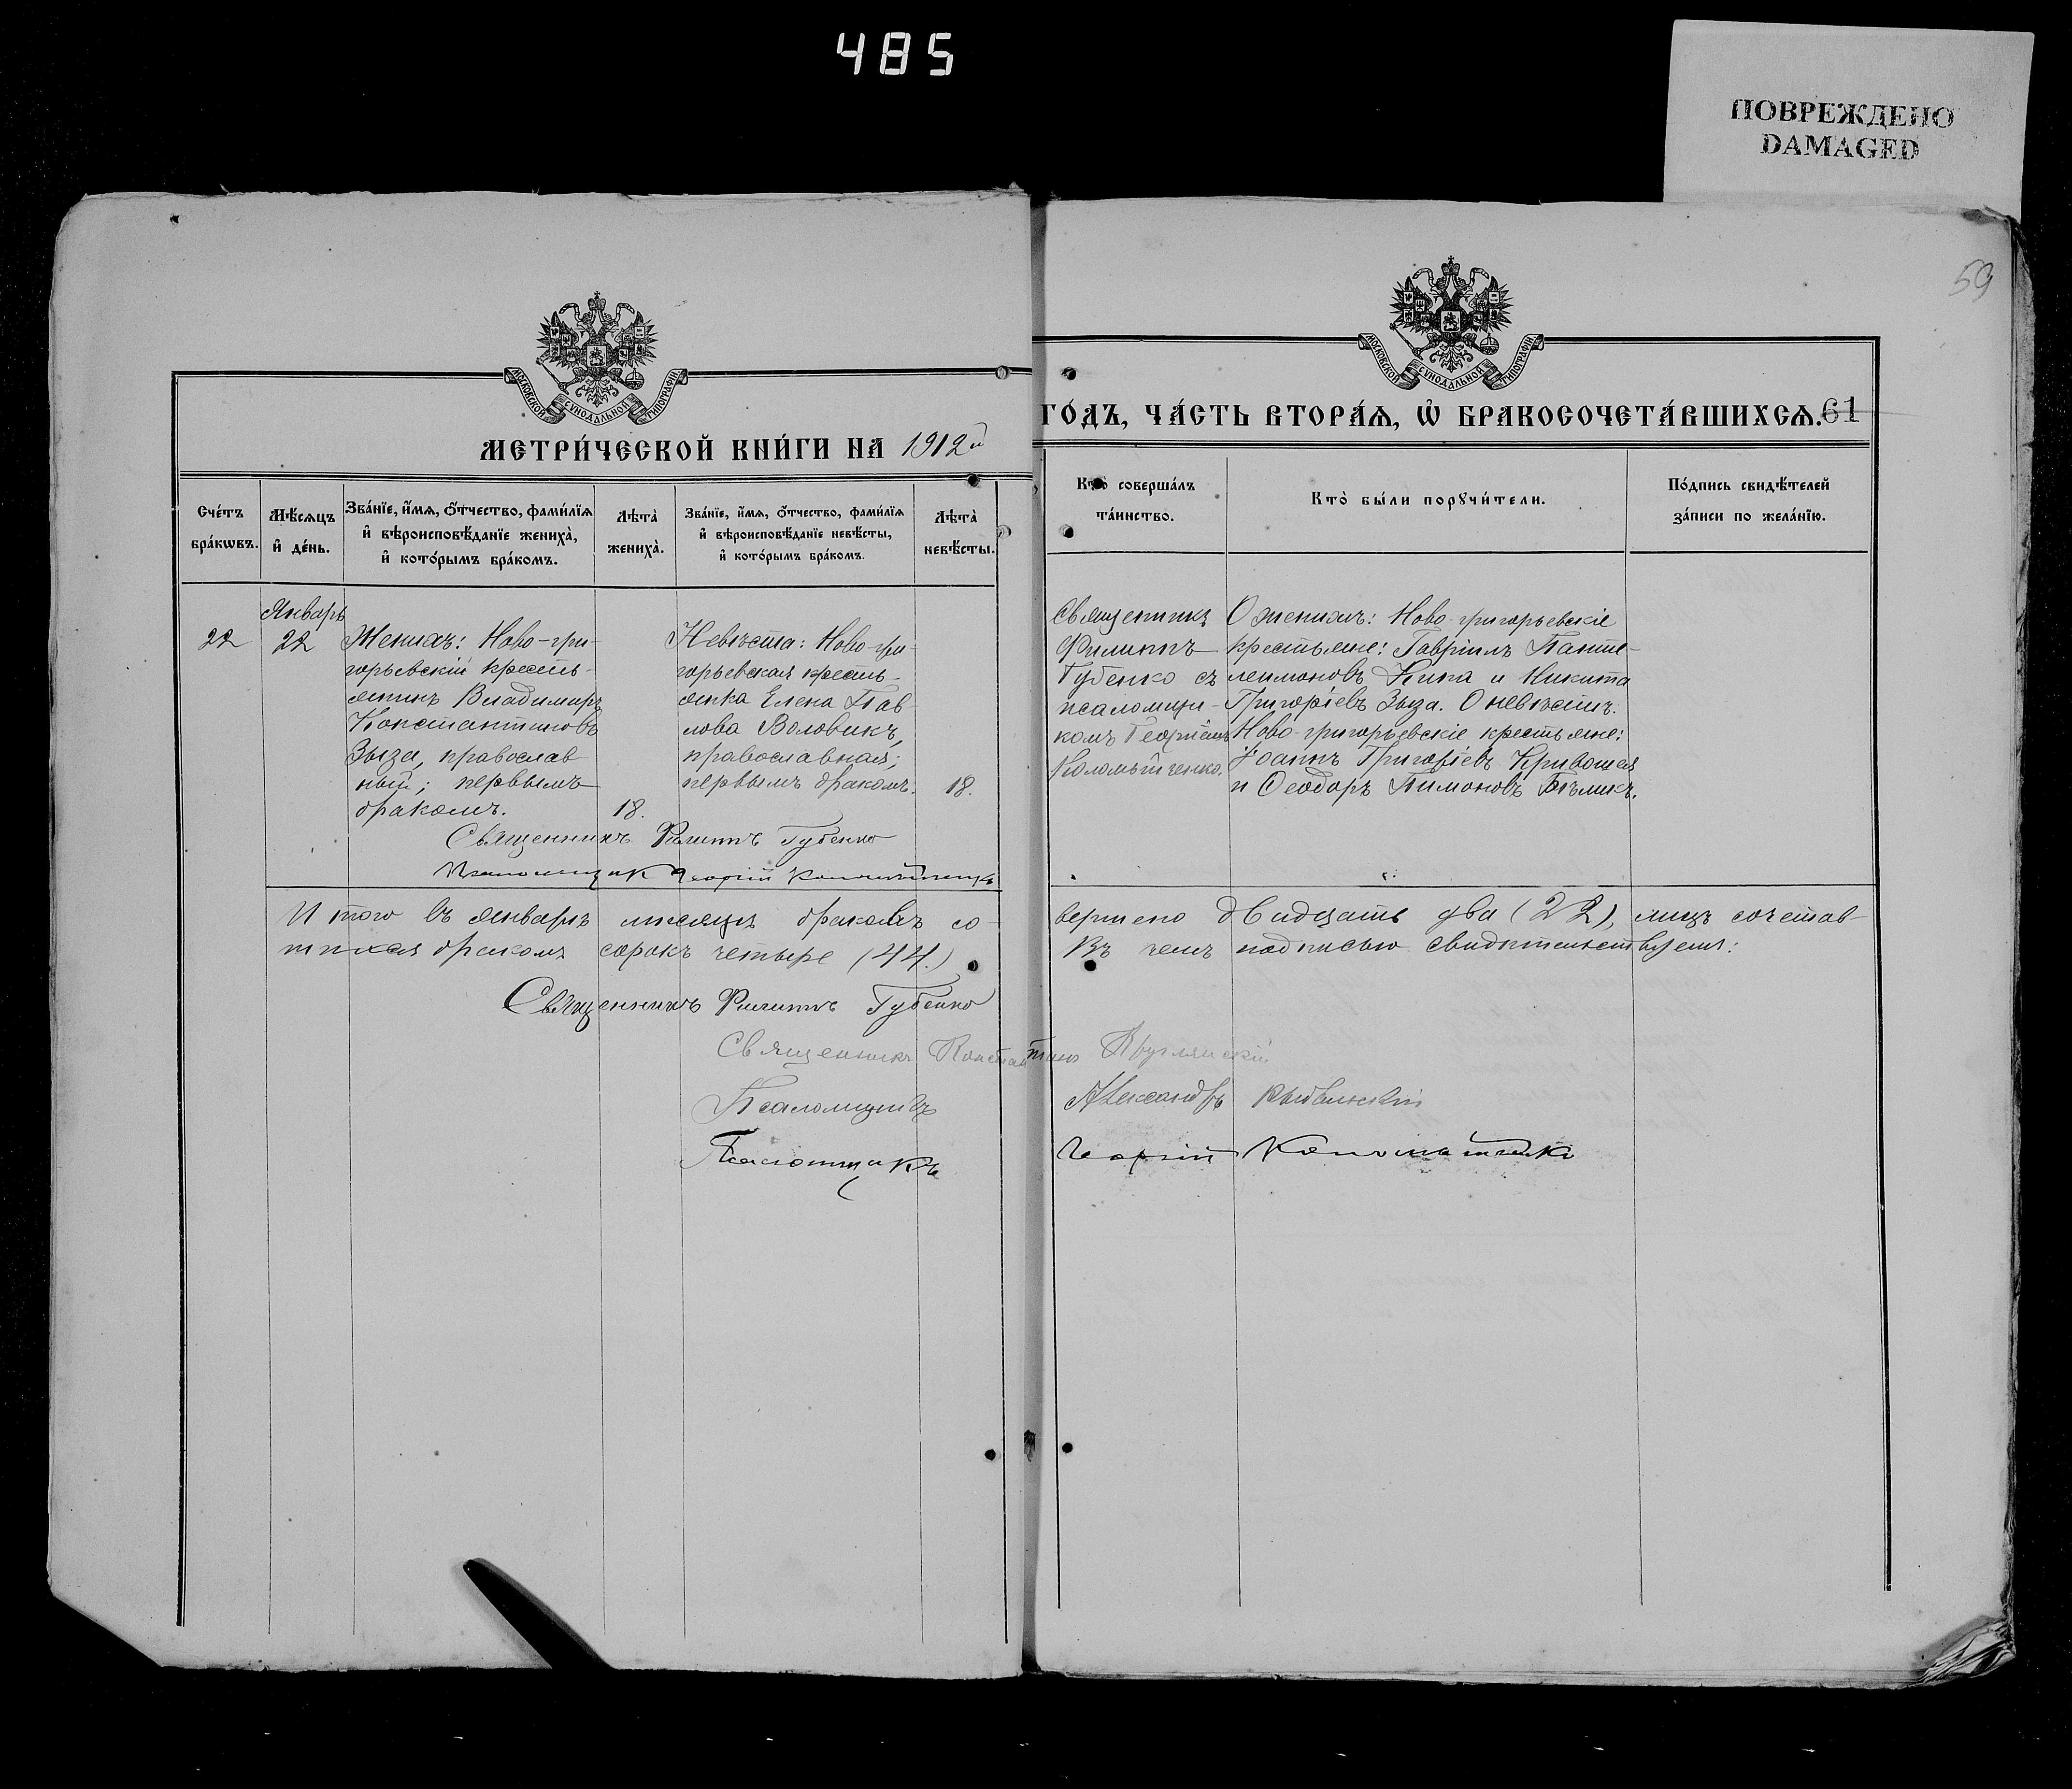 485
ПОВРЕЖДЕНО
DAMAGED
59
МОСКОВСКОЙ СѴНОДАЛЬНОЙ ТИПОГРАФІИ
МОСКОВСКОЙ СѴНОДАЛЬНОЙ ТИПОГРАФІИ
МЕТРИ́ЧЕСКОЙ КНИ́ГИ НА 1912й
ГО́ДЪ, ЧА́СТЬ ВТОРА́Ѧ, Ѿ БРАКОСОЧЕТА́ВШИХСѦ. 61
Сче́тъ
бра́кѡвъ.
Мѣ́сѧцъ
и҆ де́нь.
Зва́нїе, и҆́мѧ, ѻ҆́тчество, фами́лїѧ
и҆ вѣроисповѣ́данїе жениха̀,
и҆ кото́рымъ бра́комъ.
Лѣта̀
жениха̀.
Зва́нїе, и҆́мѧ, ѻ҆́тчество, фами́лїѧ
и҆ вѣроисповѣ́данїе невѣ́сты,
и҆ кото́рымъ бра́комъ.
Лѣта̀
невѣ́сты.
Кто̀ соверша́лъ
та́инство.
Кто̀ бы́ли порꙋчи́тели.
По́дпись свидѣ́телей
за́писи по жела́нїю.
22
Январь
22
Женихъ: Ново-гри-
горьевскій кресть-
янинъ Владимиръ
Константиновъ
Зыза, православ
ный; первымъ
бракомъ.
18.
Невѣста: Ново-гри-
горьевская кресть-
янка Елена Пав
лова Воловикъ,
православная;
первымъ бракомъ.
18.
Священникъ
Филиппъ
Губенко съ
псаломщи-
комъ Георгіемъ
Коломытченко.
О женихѣ: Ново-григорьевскіе
крестьяне: Гавріилъ Панте-
леимоновъ Кипа и Никита
Григоріевъ Зыза. О невѣстѣ:
Ново-григорьевскіе крестьяне:
Іоаннъ Григоріевъ Кривошея
и Ѳеодоръ Тимоновъ Бѣликъ.
Священникъ Филиппъ Губенко
Псаломщик Георгій Коломытченко
Итого въ январѣ месяцѣ браковъ со-
вершено двадцать два (22), лицъ сочетав-
шихся бракомъ сорокъ четыре (44.)
Въ чемъ подписью свидѣтельствуемъ:
Священникъ Филиппъ Губенко
Священникъ Константинъ
Псаломщикъ Александръ
Псаломщикъ Георгій Коломытченко